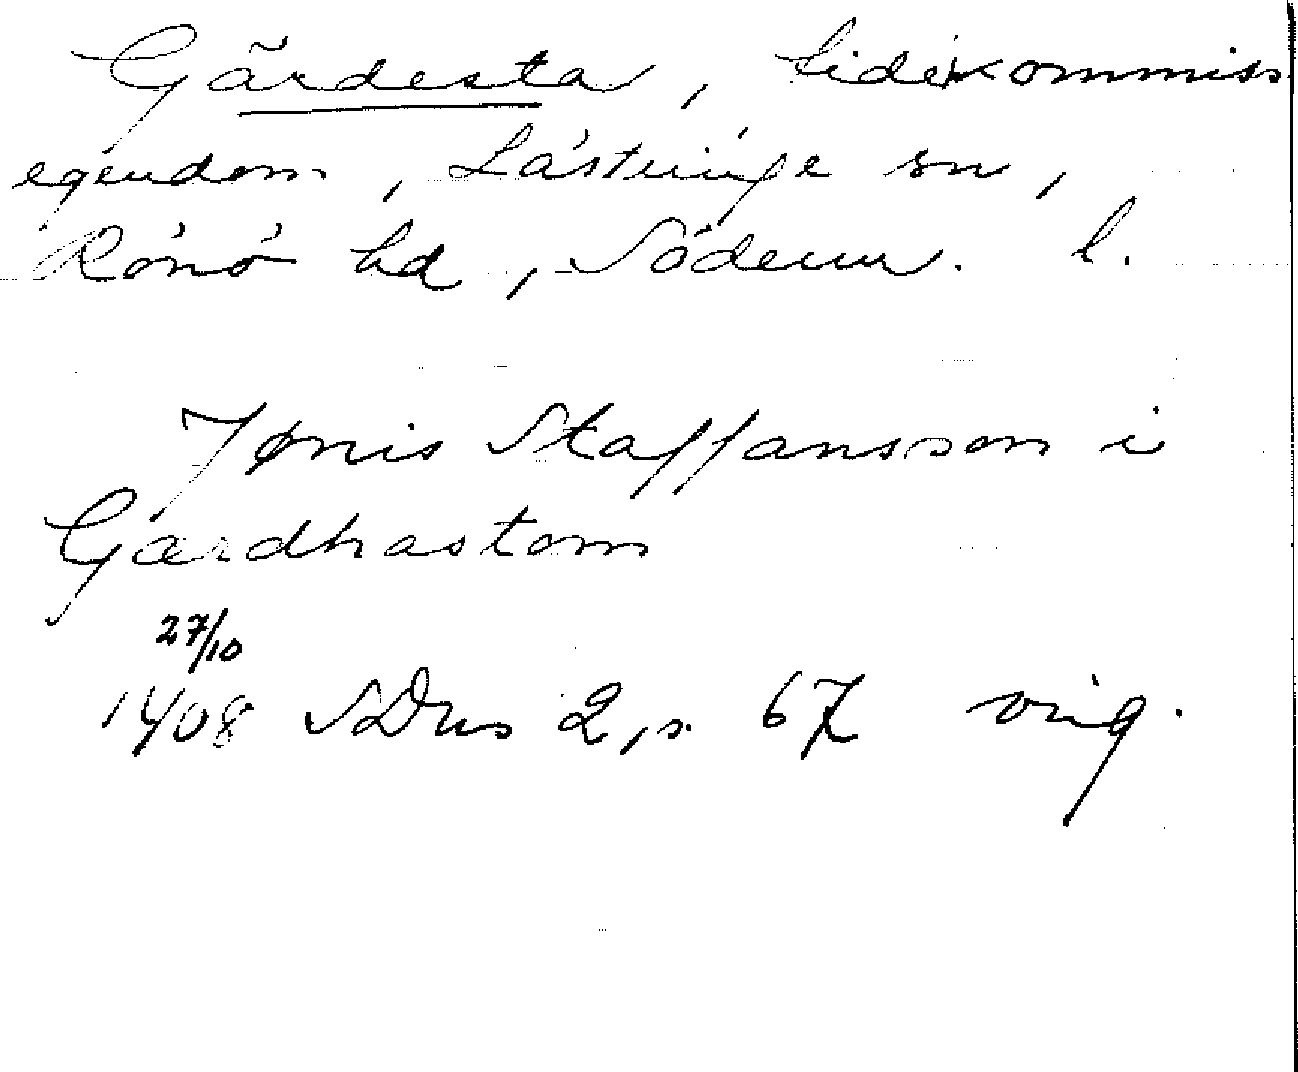 Gärdesta, fideikommiss
egendom, Lästringe sn,
Rönö hd, Söderm. l.
Jønis Staffansson i
Gærdhastom
27/10
1408 SDns 2, s. 67 orig.